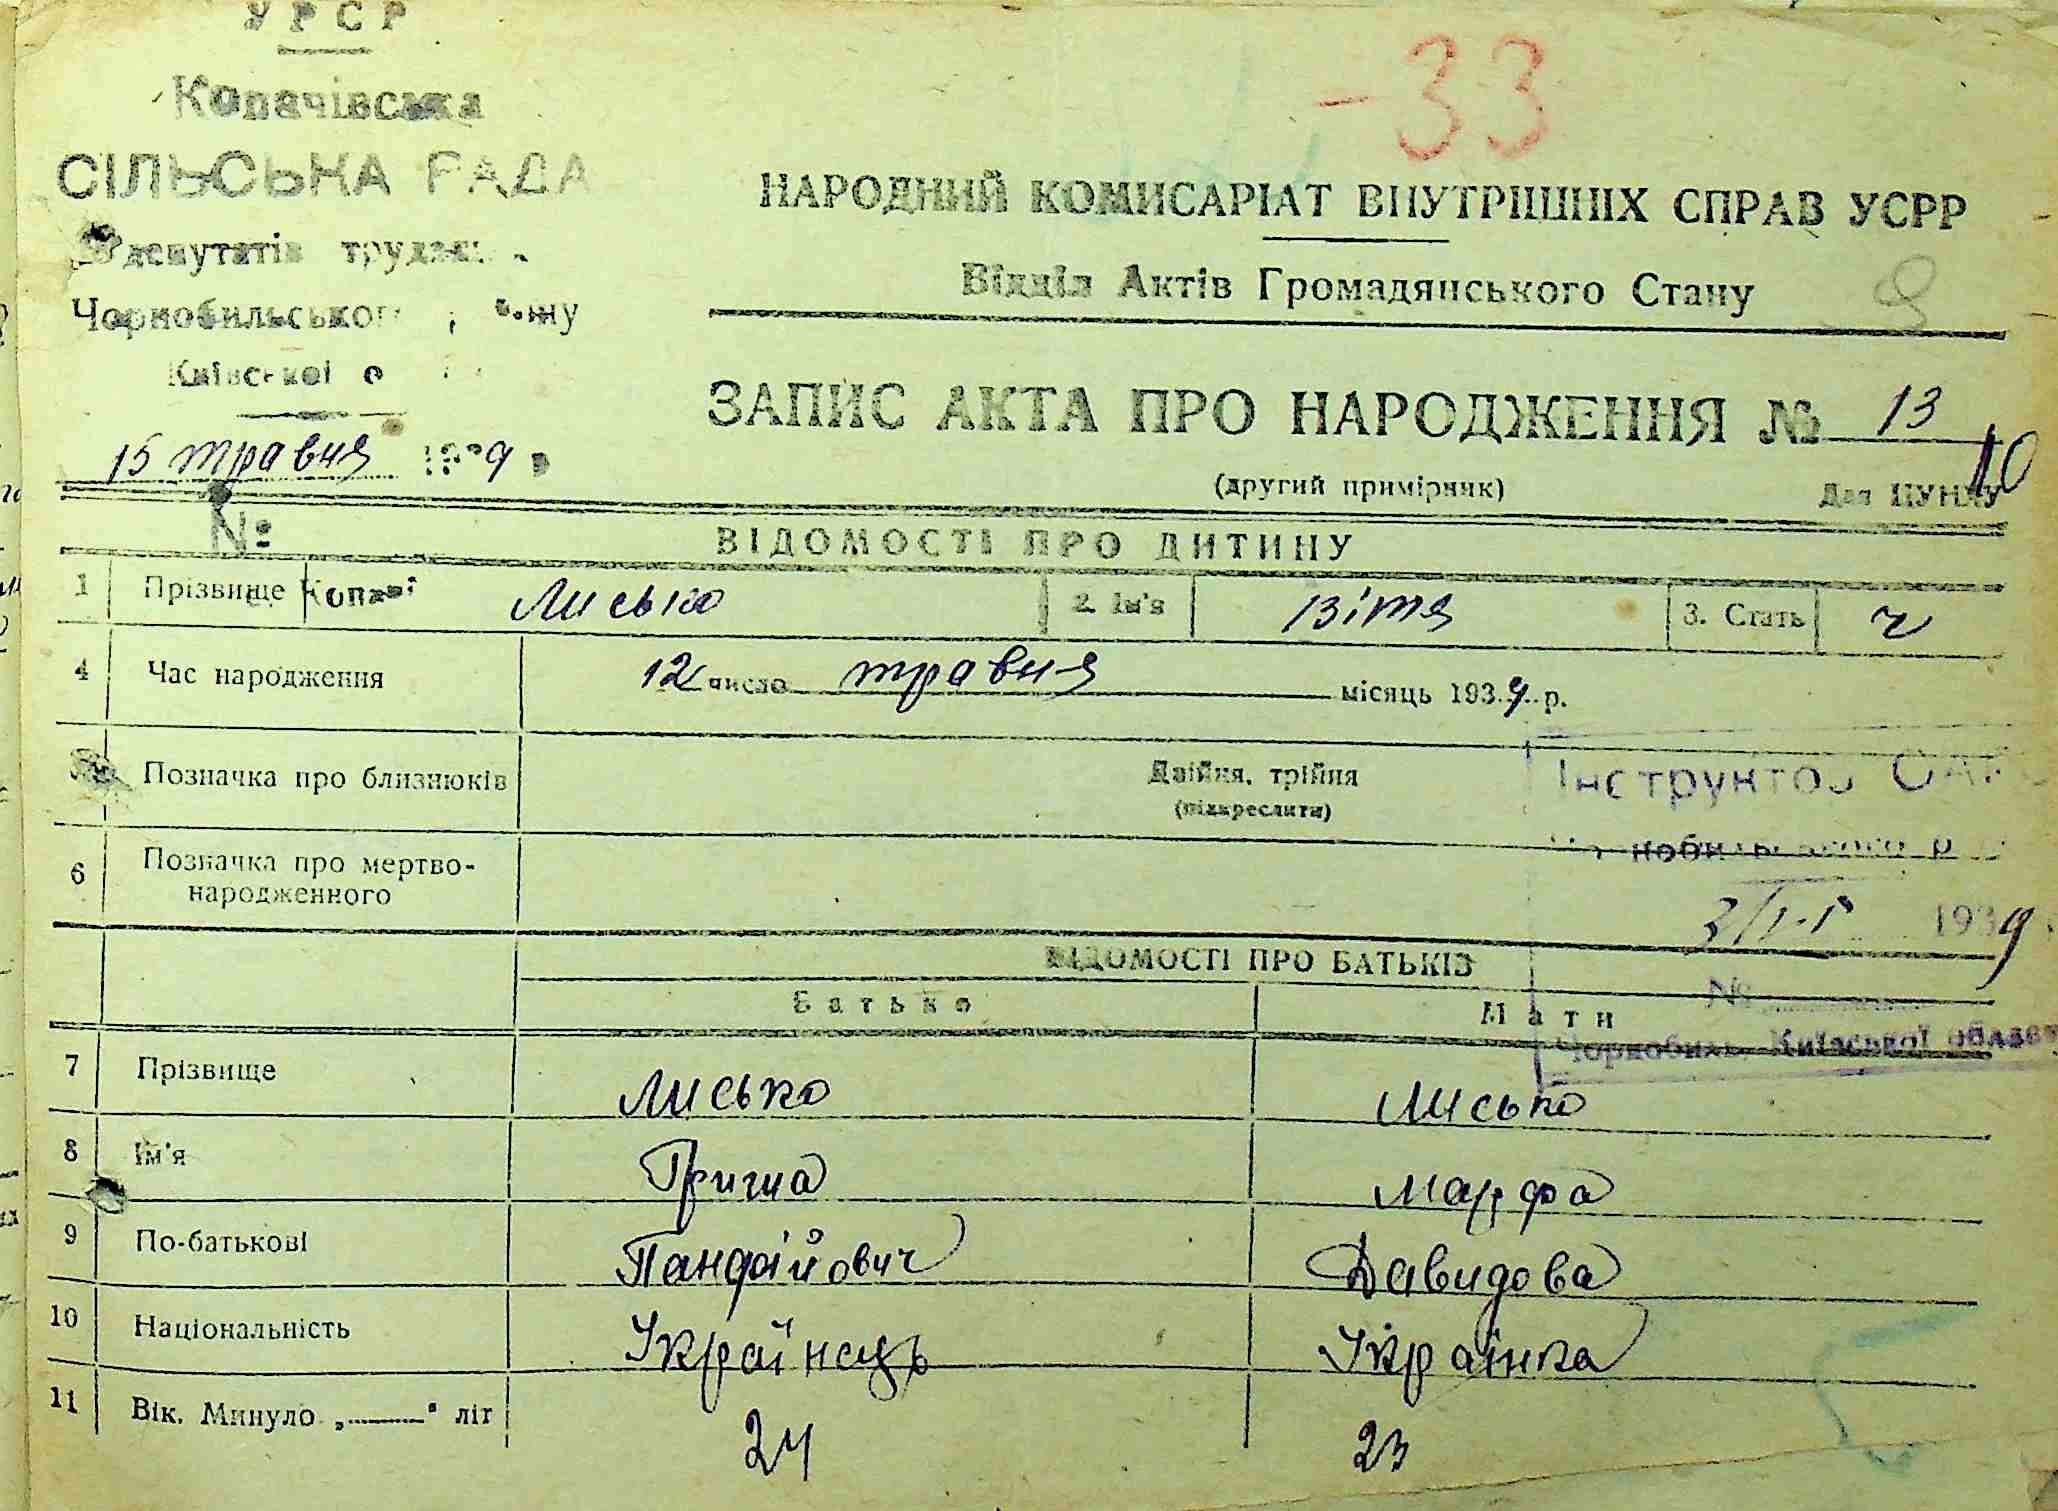 УРСР
Копачівська
СІЛЬСЬКА РАДА
депутатів
Чорнобильського
Київської
15 травня 1939 р
№
-33
НАРОДНИЙ КОМИСАРІАТ ВНУТРІШНІХ СПРАВ УСРР
Відділ Актів Громадянського Стану
ЗАПИС АКТА ПРО НАРОДЖЕННЯ № 13
10
(другий примірник)
Для ЦУНХУ
ВІДОМОСТІ ПРО ДИТИНУ
1 Прізвище Лисько 2. Ім'я Вітя 3. Стать ч
4 Час народження 12 число травня місяць 1939 р.
Позначка про близнюків Двійня, трійня
(підкреслити)
6 Позначка про мертво-
народженного
Інструктор
1939
№
Чорнобиль, Київської
ВІДОМОСТІ ПРО БАТЬКІВ
Батько Мати
7 Прізвище Лисько Лисько
8 Ім'я Гриша Марфа
9 По-батькові Панфійович Давидова
10 Національність Українець Українка
11 Вік. Минуло „ “ літ 24 23